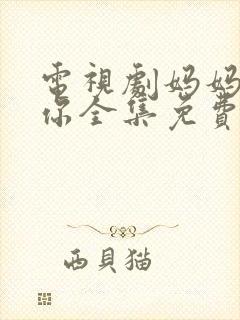 電視劇妈妈
你全集免費
西貝猫